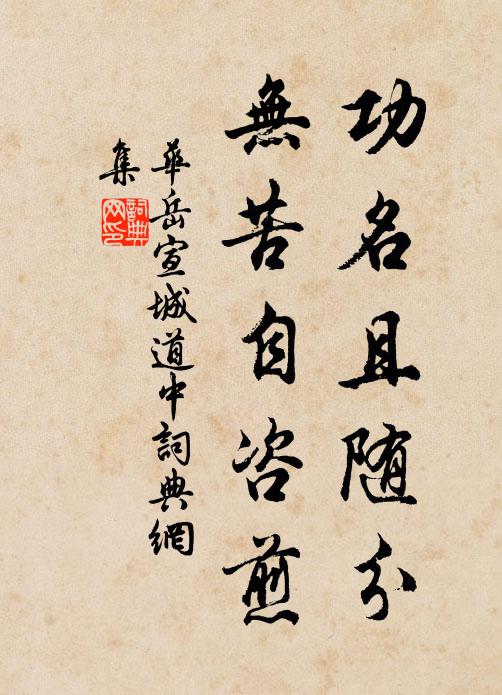 功名且随分
無苦自咨煎
華岳宣城道中詞典網
集
詞典
网印